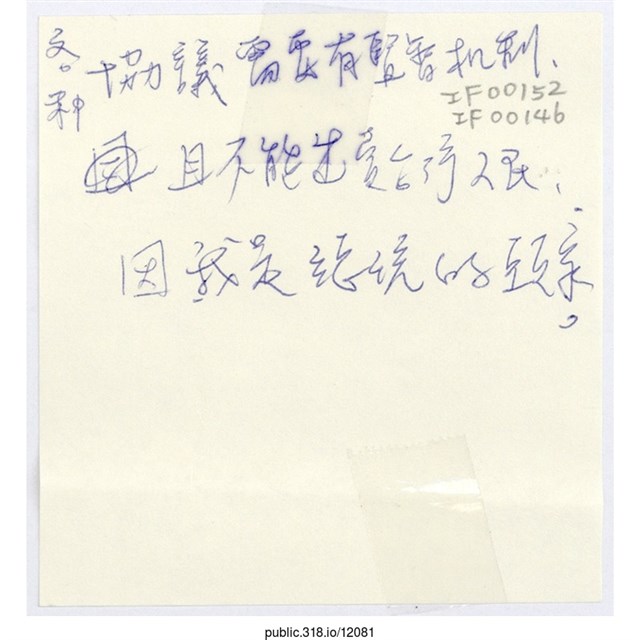 各種協議需要有監督机制、
IF00152
IF00146
且不能出賣台灣人民,
因我是總統的頭家。
public.318.io/12081